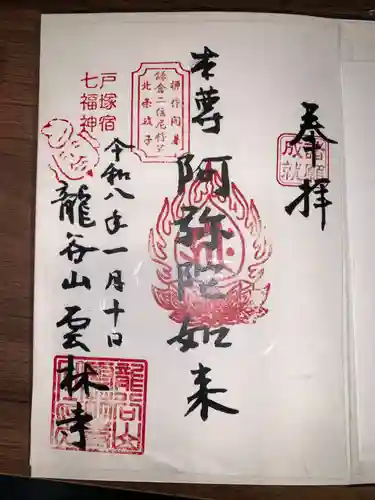 奉拝
諸願
成就
本尊
阿弥陀如来
開基
鎌倉二位尼将軍
北条政子
戸塚宿
七福神
令和八年一月十日
龍谷山雲林寺